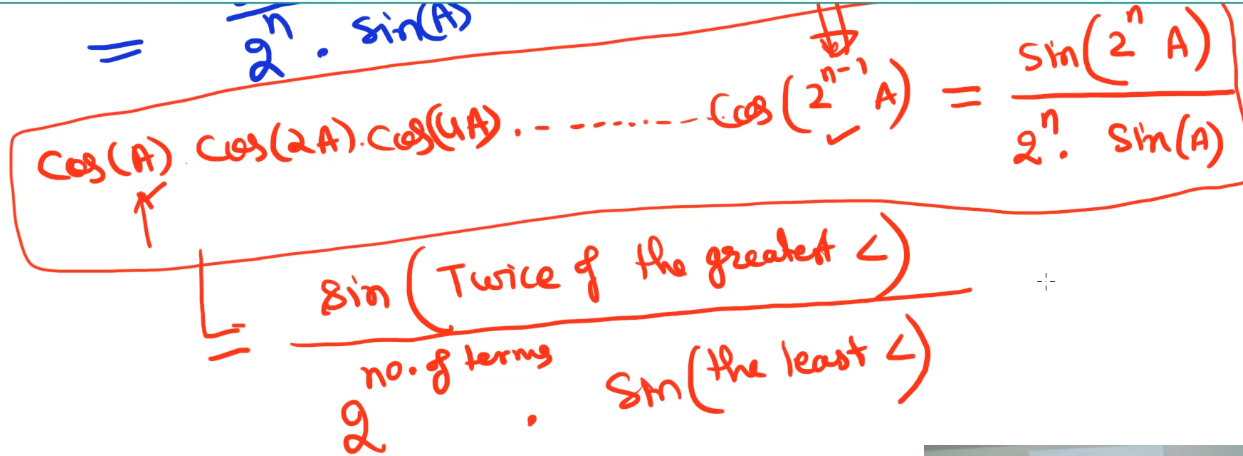 = 2ⁿ . sin(A)
Cos(A) . Cos(2A) . Cos(4A) . - ........ Cos(2ⁿ⁻¹ A) = Sin(2ⁿ A) / 2ⁿ . Sin(A)
= Sin(Twice of the greatest <) / 2^no. of terms . Sin(the least <)